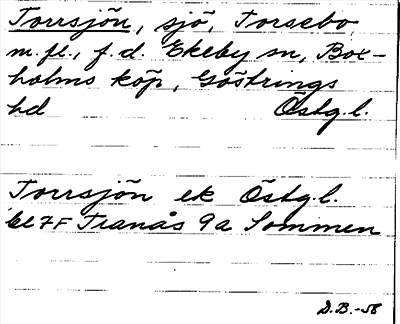 Torrsjön, sjö, Torsebo
m. fl., f. d. Ekeby sn, Box-
holms köp, Göstrings
hd Östg.l.
Torrsjön ek Östg.l.
bl 7F Tranås 9a Sommen
D.B.-58